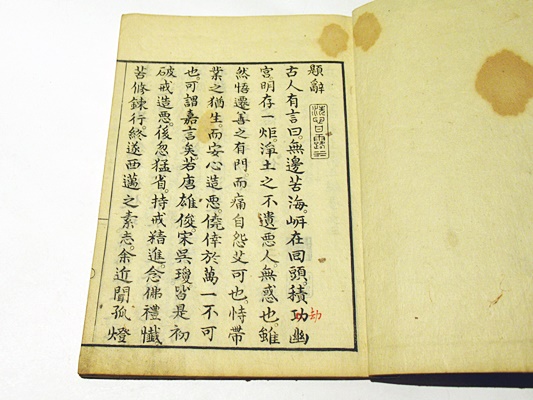 題辭
古人有言曰。無邊苦海。岍在回頭。積功幽
劫
宮明存一炬。淨土之不遺悪人。無惑也。雖
然悟遷善之有門。而痛自怨艾可也。恃帶
業之猶生。而安心造悪。僥倖於萬一不可
也。可謂嘉言矣。若唐雄俊宋吳瓊。皆是初
破戒造悪。後忽猛省。持戒精進。念佛禮懺
苦修錬行。終遂西邁之素志。余近聞孤燈